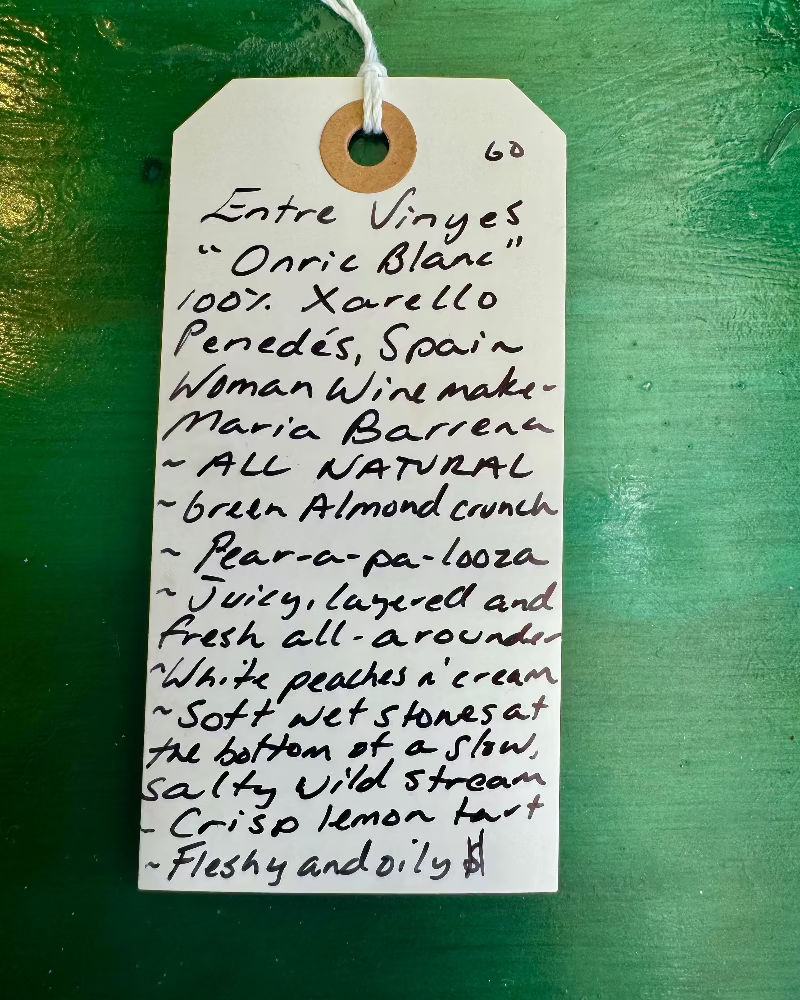 60
Entre Vinyes
"Onric Blanc"
100% Xarello
Penedés, Spain
Woman Winemaker
Maria Barrena
~ ALL NATURAL
~ Green Almond crunch
~ Pear-a-pa-looza
~ Juicy, layered and
fresh all-arounder
~ White peaches n' cream
~ Soft wet stones at
the bottom of a slow,
salty wild stream
- Crisp lemon tart
~ Fleshy and oily